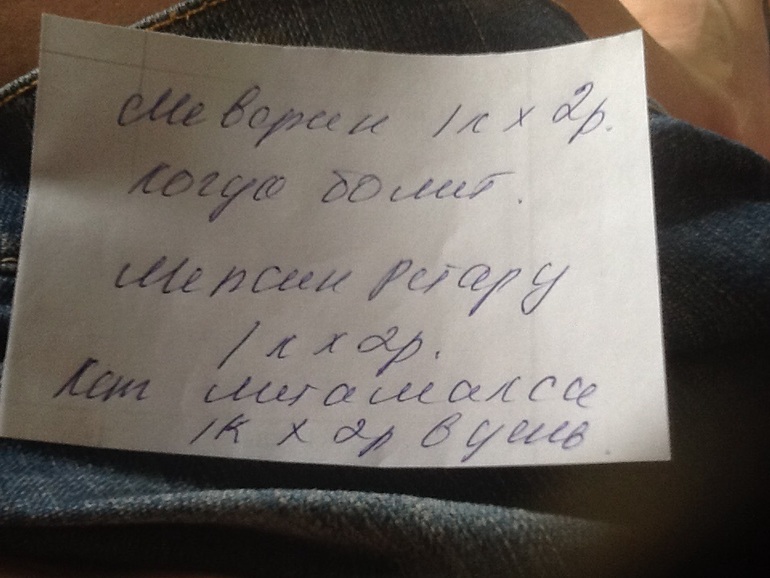 Меверин 1к х 2р.
когда болит.
Мепсин Ретард
1к х 2р.
Кап метамакса
1к х 2р в день